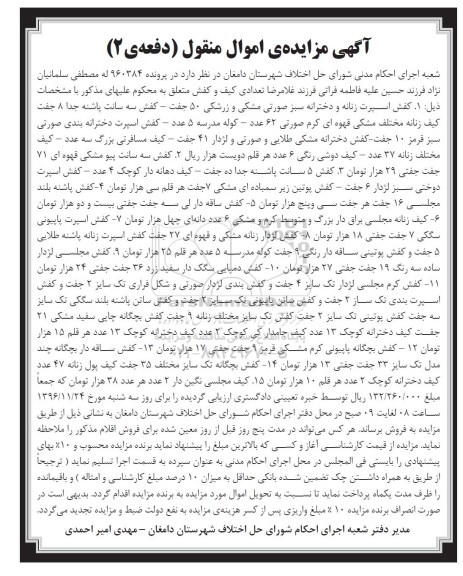 آگهی مزایده‌ی اموال منقول (دفعه‌ی۲)
شعبه اجرای احکام مدنی شورای حل اختلاف شهرستان دامغان در نظر دارد در پرونده ۹۶۰۳۸۴ له مصطفی سلمانیان
نژاد فرزند حسین علیه فاطمه فراتی فرزند غلامرضا تعدادی کیف و کفش متعلق به محکوم علیهای مذکور با مشخصات
ذیل: ۱. کفش اسپرت زنانه و دخترانه سبز صورتی مشکی و زرشکی ۵۰ جفت – کفش سه سانت پاشنه جدا ۸ جفت
کیف زنانه مختلف مشکی قهوه ای کرم صورتی ۶۲ عدد – کوله مدرسه ۵ عدد – کفش اسپرت دخترانه بندی صورتی
سبز قرمز ۱۰ جفت-کفش دخترانه مشکی طلایی و صورتی و لژدار ۴۱ جفت – کیف مسافرتی بزرگ سه عدد – کیف
مختلف زنانه ۳۷ عدد – کیف دوشی رنگی ۶ عدد هر قلم دویست هزار ریال ۲. کفش سه سانت پیو مشکی قهوه ای ۷۱
جفت جفتی ۲۹ هزار تومان ۳. کفش ۵ سانت پاشنه جدا ده جفت – کیف دهانه دار کوچک ۴ عدد – کفش اسپرت
دوختی سبز لژدار ۶ جفت – کفش پوتین زیر سمباده ای مشکی ۷جفت هر قلم سی هزار تومان ۴-کفش پاشنه بلند
مجلسی ۱۶ جفت هر جفت سی وپنج هزار تومان ۵- کفش ساقه دار لی سه جفت جفتی بیست و دو هزار تومان
۶- کیف زنانه مجلسی براق دار بزرگ و متوسط کرم و مشکی ۶ عدد دانه‌ای چهل هزار تومان ۷- کفش اسپرت پاپیونی
سگکی ۷ جفت جفتی ۱۸ هزار تومان ۸- کفش لژدار زنانه مشکی و قهوه ای ۲۷ جفت کفش اسپرت زنانه پاشنه طلایی
۵ جفت و کفش پوتینی ساقه دار رنگی ۹ جفت کوله مدرسه ۵ عدد هر قلم ۲۵ هزار تومان ۹. کفش مجلسی لژدار
ساده سه رنگ ۱۹ جفت جفتی ۲۷ هزار تومان ۱۰- کفش دمپایی سگک دار سفید زرد ۳۶ جفت جفتی ۲۴ هزار تومان
۱۱- کفش کرم مجلسی لژدار تک سایز ۴ جفت و کفش بندی لژدار صورتی و شکل فراری تک سایز ۲ جفت و کفش
اسپرت بندی تک ساز ۲ جفت و کفش ساتن پاپیونی تک سایز ۲ جفت و کفش ساتن پاشنه بلند سگکی تک سایز
سه جفت کفش پوتینی تک سایز ۲ جفت کفش تک سایز مختلف زنانه ۹ جفت کفش بچگانه چاپی سفید مشکی ۲۱
جفت کیف دخترانه کوچک ۱۳ عدد کیف جامدار کی کوچک ۲ عدد کیف دخترانه کوچک ۱۳ عدد هر قلم ۱۵ هزار
تومان ۱۲ – کفش بچگانه پاپیونی کرم مشکی قرمز ۹ جفت جفتی ۱۷ هزار تومان ۱۳- کفش ساقه دار بچگانه چند
مدل تک سایز ۳۳ جفت جفتی ۱۳ هزار تومان ۱۴- کفش بچگانه تک سایز مختلف ۳۵ جفت کیف پول زنانه ۴۷ عدد
کیف دخترانه کوچک ۲ عدد هر قلم ۱۰ هزار تومان ۱۵. کیف مجلسی نگین دار ۲ عدد هر عدد ۳۸ هزار تومان که جمعاً
مبلغ ۱۳۲/۲۶۰/۰۰۰ ریال توسط خبره تعیینی دادگستری ارزیابی گردیده را برای روز سه شنبه مورخ ۱۳۹۶/۱۱/۲۴
ساعت ۰۸ لغایت ۰۹ صبح در محل دفتر اجرای احکام شورای حل اختلاف شهرستان دامغان به نشانی ذیل از طریق
مزایده به فروش برساند. هر کس می‌تواند در مدت پنج روز قبل از روز معین شده برای فروش اقلام مذکور را ملاحظه
نماید. مزایده از قیمت کارشناسی آغاز و کسی که بالاترین مبلغ را پیشنهاد نماید برنده مزایده محسوب و ۱۰٪ بهای
پیشنهادی را بایستی فی المجلس در محل اجرای احکام مدنی به عنوان سپرده به قسمت اجرا تسلیم نماید ( ترجیحاً
از طریق به همراه داشتن چک تضمین شده بانکی حداقل به میزان ۱۰ درصد مبلغ کارشناسی و امثاله ) و باقیمانده
را ظرف مدت یکماه پرداخت نماید تا نسبت به تحویل اموال مورد مزایده به برنده مزایده اقدام گردد. بدیهی است در
صورت انصراف برنده مزایده ۱۰ ٪ مبلغ واریزی پس از کسر هزینه‌ی مزایده به نفع دولت ضبط و مزایده تجدید می‌گردد.
مدیر دفتر شعبه اجرای احکام شورای حل اختلاف شهرستان دامغان – مهدی امیر احمدی